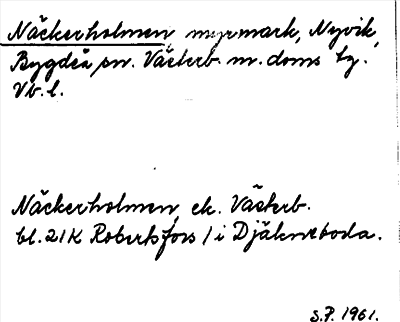 Näckerholmen, myrmark, Nyvik,
Bygdeå sn. Västerb. n. doms tg.
Vb. l.
Näckerholmen, ek. Västerb.
bl. 21K Robertsfors / i Djäkneboda.
S.P. 1961.